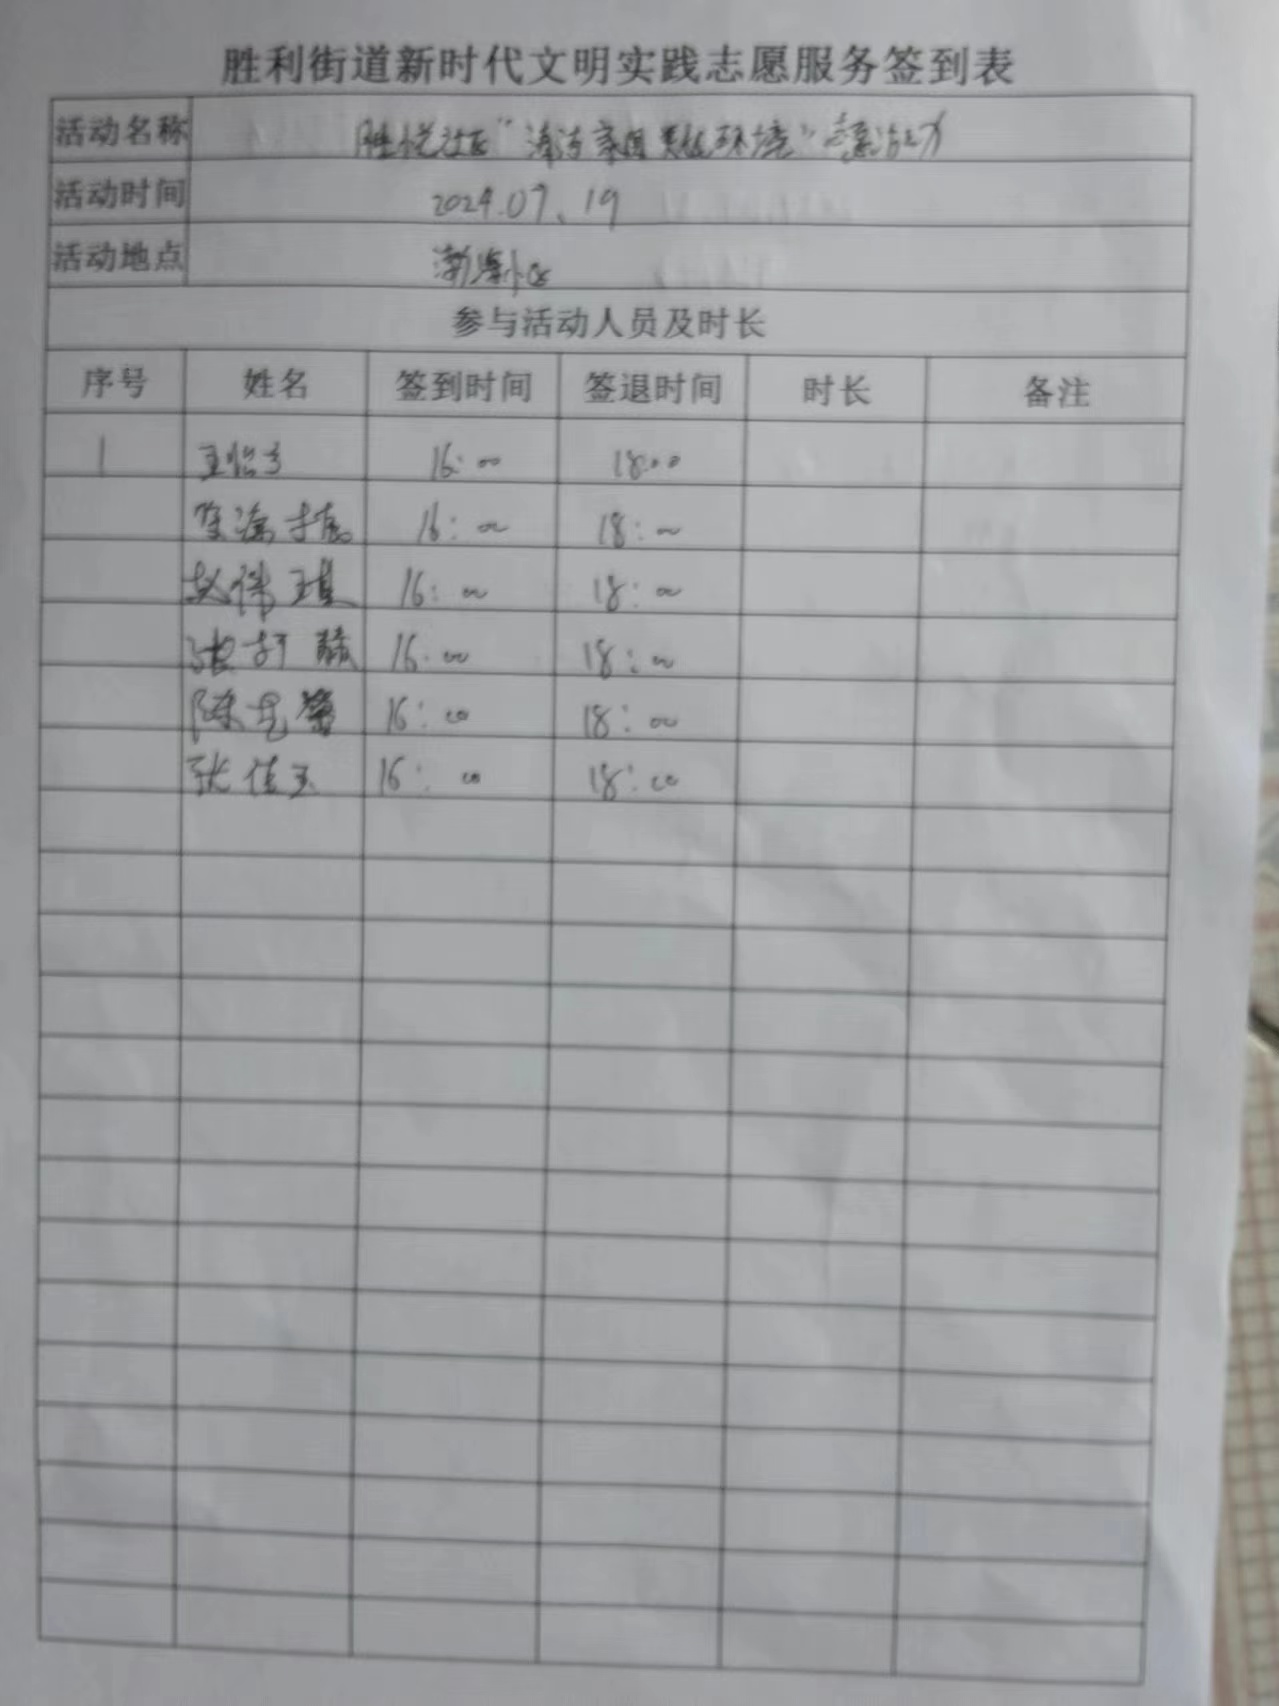 胜利街道新时代文明实践志愿服务签到表
活动名称 胜悦社区“清洁家园 美化环境”志愿活动
活动时间 2024.07.19
活动地点 渤海小区
参与活动人员及时长
序号 姓名 签到时间 签退时间 时长 备注
1 王怡 16:00 18:00
16:00 18:00
赵伟琪 16:00 18:00
张 16:00 18:00
陈 16:00 18:00
张佳玉 16:00 18:00